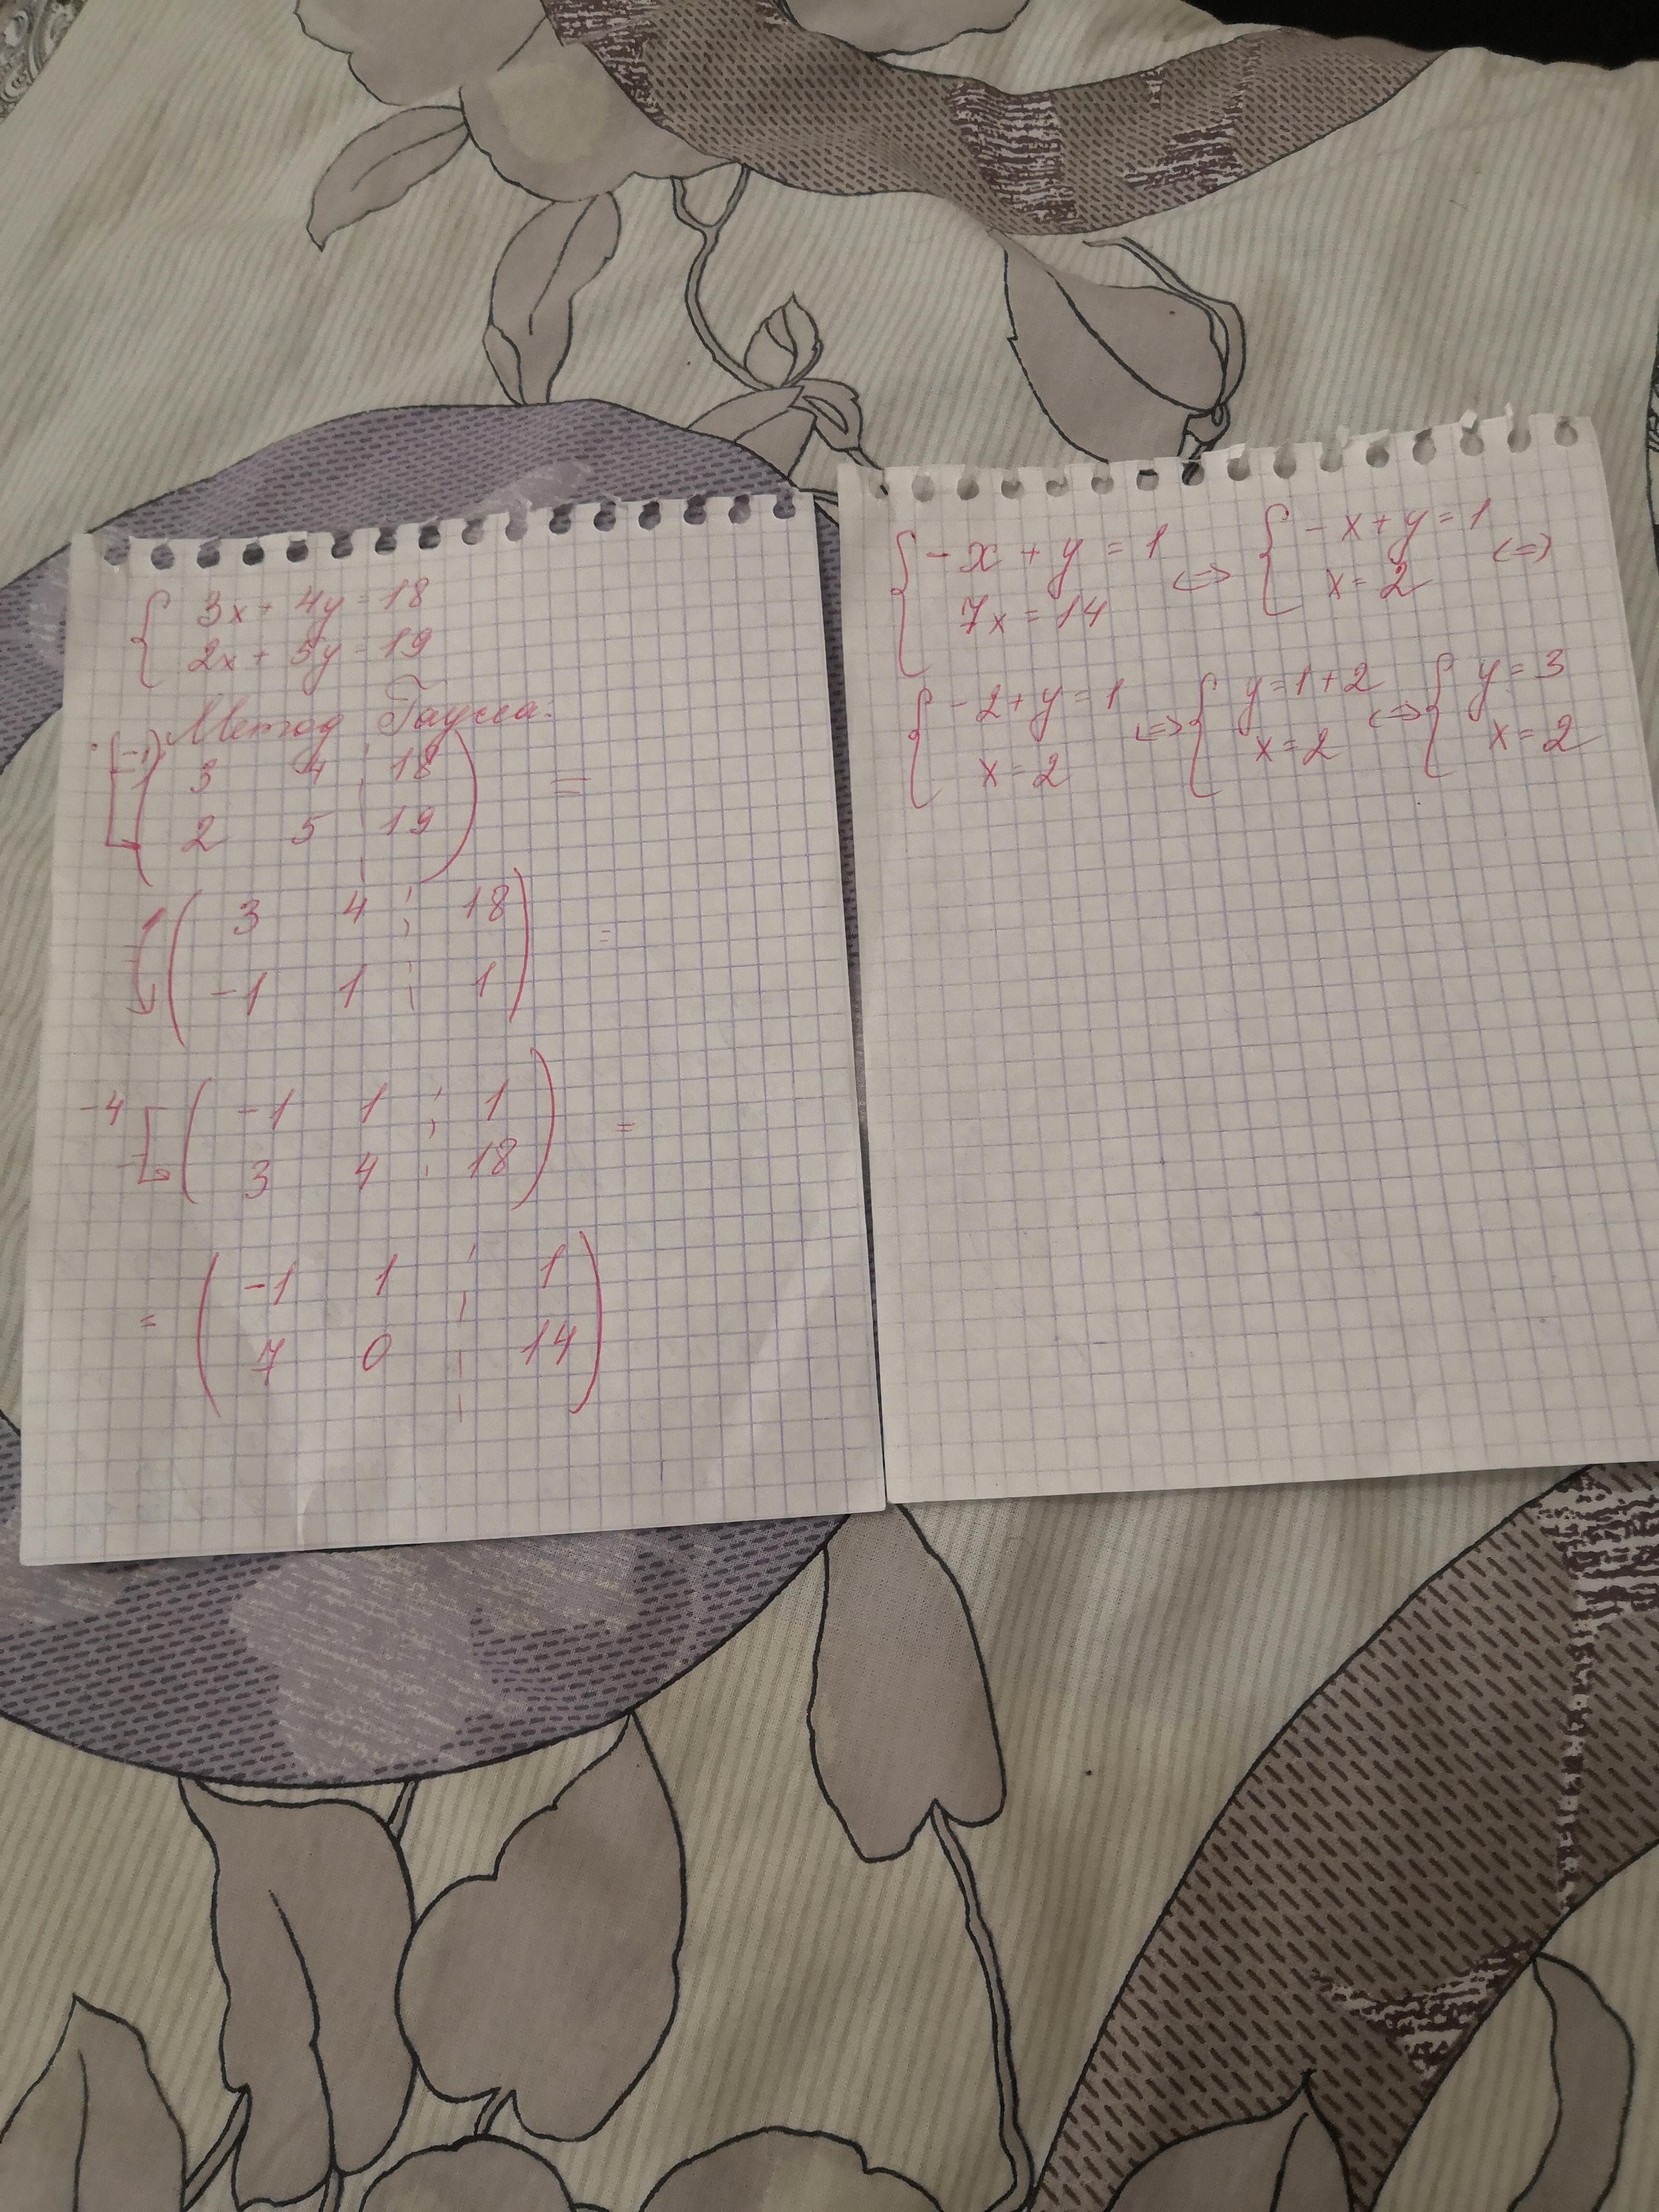 { 3x + 4y = 18
2x + 5y = 19
Метод Гаусса.
(-1) ( 3 4 ¦ 18 ) =
2 5 ¦ 19
( 3 4 ¦ 18 ) =
-1 1 ¦ 1
-4 ( -1 1 ¦ 1 ) =
3 4 ¦ 18
= ( -1 1 ¦ 1 )
7 0 ¦ 14
{ -x + y = 1 <=> { -x + y = 1 <=>
7x = 14 x = 2
{ -2 + y = 1 <=> { y = 1 + 2 <=> { y = 3
x = 2 x = 2 x = 2